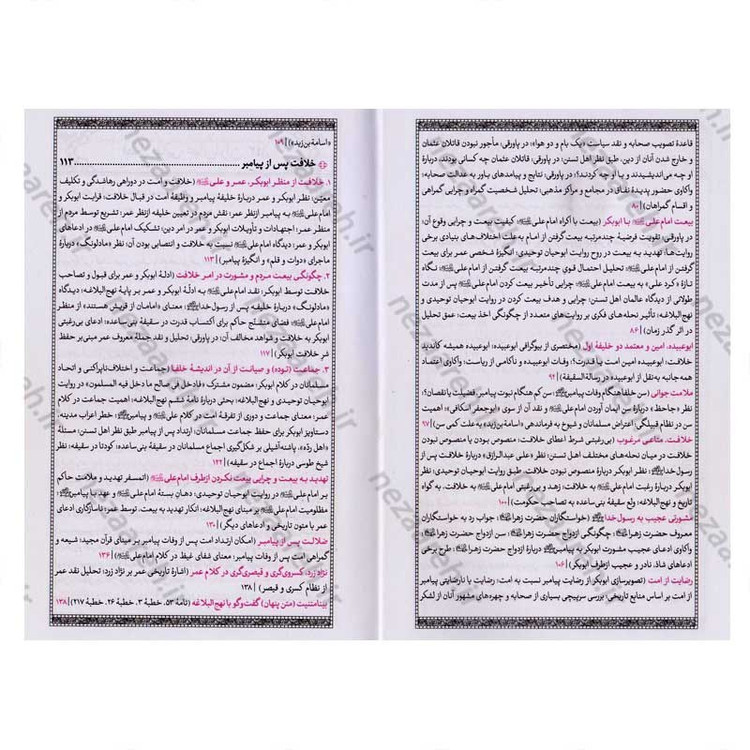 قاعدهٔ تصویب صحابه و نقد سیاست «یک بام و دو هوا»؛ در پاورقی: مأجور نبودن قاتلان عثمان
و خارج شدن آنان از دین، طبق نظر اهل تسنن؛ در پاورقی: قاتلان عثمان چه کسانی بودند، دربارهٔ
او چه می‌اندیشیدند و با او چه کردند؟؛ در پاورقی: نتایج و پیامدهای باور به عدالت صحابه؛
واکاوی حضور پدیدهٔ نفاق در جوامع و مراکز مذهبی؛ تحلیل شخصیت گمراه و چرایی گمراهی
و اقسام گمراهان) | ۸۰
بیعت امام علی با ابوبکر (بیعت با اکراه امام علی؛ کیفیت بیعت و چرایی وقوع آن؛
در پاورقی: تقویت فرضیهٔ چندمرتبه بیعت گرفتن از امام به علت اختلاف‌های بنیادی برخی
روایت‌ها؛ تهدید به بیعت در روح روایت ابوحیان توحیدی؛ انگیزهٔ شخصی عمر برای بیعت
گرفتن از امام علی؛ تحلیل احتمال قوی چندمرتبه بیعت گرفتن از امام علی؛ نگاه
تازه «کرد علی» به بیعت امام علی؛ چرایی تأخیر بیعت کردن امام علی پس از مدت
طولانی از دیدگاه عالمان اهل تسنن؛ چرایی و هدف بیعت کردن در روایت ابوحیان توحیدی و
نهج‌البلاغه؛ تأثیر نحله‌های فکری بر روایت‌های متعدد از چگونگی اخذ بیعت؛ عمق تحلیل
در اثر گذر زمان) | ۸۶
ابوعبیده، امین و معتمد دو خلیفهٔ اول (مختصری از بیوگرافی ابوعبیده؛ ابوعبیده همیشه کاندید
خلافت؛ ابوعبیده امین امت یا قدرت؟؛ وفات ابوعبیده و ناآگاهی از ریاست؛ واکاوی اعتماد
همه‌جانبه به نقل از ابوعبیده در رسالة السقیفة) | ۹۴
ملامت جوانی (سن خلفا هنگام وفات پیامبر؛ سن کم هنگام نبوت پیامبر، فضیلت یا نقصان؟؛
نظر «جاحظ» دربارهٔ سن ایمان آوردن امام علی و نقد آن از سوی «ابوجعفر اسکافی»؛ اهمیت
سن در نظام قبیلگی؛ اعتراض مهاجران و شیوخ به فرماندهی «اسامة بن زید» به علت کمی سن) | ۹۷
خلافت، متاعی مرغوب (بی‌رغبتی شرط اعطای خلافت؛ منصوص بودن یا منصوص نبودن
خلافت در میان نحله‌های مختلف اهل تسنن؛ نظر «علی عبدالرازق» دربارهٔ خلافت پس از
رسول خدا؛ نظر ابوبکر دربارهٔ منصوص نبودن خلافت، طبق روایت ابوحیان توحیدی؛ نظر
ابوبکر دربارهٔ رغبت امام علی به خلافت؛ زهد و بی‌رغبتی امام علی به خلافت، به گواه
تاریخ و نهج‌البلاغه؛ ولع سقیفهٔ بنی‌ساعده به تصاحب حکومت) | ۱۰۰
مشورتی عجیب به رسول خدا (خواستگاران حضرت زهرا؛ جواب رد به خواستگاران
معروف حضرت زهرا؛ چگونگی ازدواج حضرت زهرا؛ سن ازدواج حضرت زهرا؛
واکاوی ادعای عجیب مشورت ابوبکر به پیامبر دربارهٔ ازدواج حضرت زهرا؛ طرح برخی
ادعاهای شاذ، نادر و عجیب ازطرف ابوبکر) | ۱۰۶
رضایت از امت (تصویرسازی ابوبکر از رضایت پیامبر نسبت به امت؛ رضایت یا نارضایتی پیامبر
از امت بر اساس منابع تاریخی؛ بررسی سرپیچی بسیاری از صحابه و چهره‌های مشهور آنان از لشکر
«اسامة بن زید») | ۱۰۹
خلافت پس از پیامبر ................ ۱۱۳
۱. خلافت از منظر ابوبکر، عمر و علی (خلافت و امت در دوراهی رهاشدگی و تکلیف
معیّن؛ نظر ابوبکر و عمر دربارهٔ خلیفهٔ پیامبر و وظیفهٔ امت در قبال خلافت؛ قرابت ابوبکر و
امام علی به پیامبر ازنظر عمر؛ نقش مردم در تعیین خلیفه ازنظر عمر؛ تشریع توسط مردم از
منظر عمر؛ اجتهادات و تأویلات ابوبکر و عمر در امر دین؛ تشکیک امام علی در ادعاهای
ابوبکر و عمر؛ دیدگاه امام علی نسبت به خلافت و انتصابی بودن آن؛ نظر «مادلونگ» دربارهٔ
ماجرای «دوات و قلم» و انگیزهٔ پیامبر) | ۱۱۳
۲. چگونگی بیعت مردم و مشورت در امر خلافت (ادلهٔ ابوبکر و عمر برای قبول و تصاحب
خلافت توسط ابوبکر؛ نقد امام علی به ادلّهٔ ابوبکر و عمر بر پایهٔ نهج‌البلاغه؛ نظر
«مادلونگ» دربارهٔ خلیفه پس از رسول خدا؛ معنای «امامان از قریش هستند» از منظر
امام علی؛ فضای متشنّج حاکم برای اکتساب قدرت در سقیفهٔ بنی‌ساعده؛ ادعای بی‌رغبتی
ابوبکر به خلافت و شواهد مخالف آن؛ در پاورقی: تحلیل و نقد جملهٔ معروف عمر مبنی بر حفظ
شر خلافت ابوبکر) | ۱۱۷
۳. جماعت (توده) و صیانت از آن در اندیشهٔ خلفا (جماعت و اختلاف‌ناپراکنی و اتحاد
مسلمانان در کلام ابوبکر؛ مضمون مشترک «فادخل فی صالح ما دخل فیه المسلمون» در روایت
ابوحیان توحیدی و نهج‌البلاغه؛ بحثی دربارهٔ نامهٔ ششم نهج‌البلاغه؛ اهمیت جماعت در کلام
عمر؛ معنای جماعت و دوری از تفرقهٔ امت در کلام امام علی و پیامبر؛ خطر اعراب مدینه،
دستاویز ابوبکر برای حفظ جماعت مسلمانان؛ ارتداد پس از پیامبر طبق نظر اهل تسنن؛ مسئلهٔ
«اهل ردّه»، پاشنه‌آشیلی بر شکل‌گیری اجماع مسلمانان در سقیفهٔ بنی‌ساعده؛ کودتا در سقیفه؛ نظر
شیخ طوسی دربارهٔ اجماع در سقیفه) | ۱۲۲
تهدید به بیعت و چرایی بیعت نکردن ازطرف امام علی (اتمسفر تهدید و ملامت حاکم
بر امام علی در روایت ابوحیان توحیدی؛ دهان بستهٔ امام علی و عهد با پیامبر؛
مظلومیت امام علی بر مبنای نهج‌البلاغه؛ انکار تهدید به بیعت، توسط عمر؛ ناسازگاری ادعای
عمر با متون تاریخی و ادعاهای دیگر) | ۱۳۰
ضلالت پس از پیامبر (امکان ارتداد امت پس از وفات پیامبر بر مبنای قرآن مجید؛ شیعه و
گمراهی امت پس از وفات پیامبر؛ معنای شفای غیظ در کلام امام علی) | ۱۳۶
نژاد زرد، کسروی‌گری و قیصری‌گری در کلام عمر (اشارهٔ تاریخی عمر بر نژاد زرد؛ تحلیل نقد عمر
از نظام کسری و قیصر) | ۱۳۸
بینامتنیت (متن پنهان) گفت‌وگو با نهج‌البلاغه (نامهٔ ۵۳، خطبهٔ ۳، خطبهٔ ۲۶، خطبهٔ ۲۱۷) | ۱۳۸
nezaareh.ir